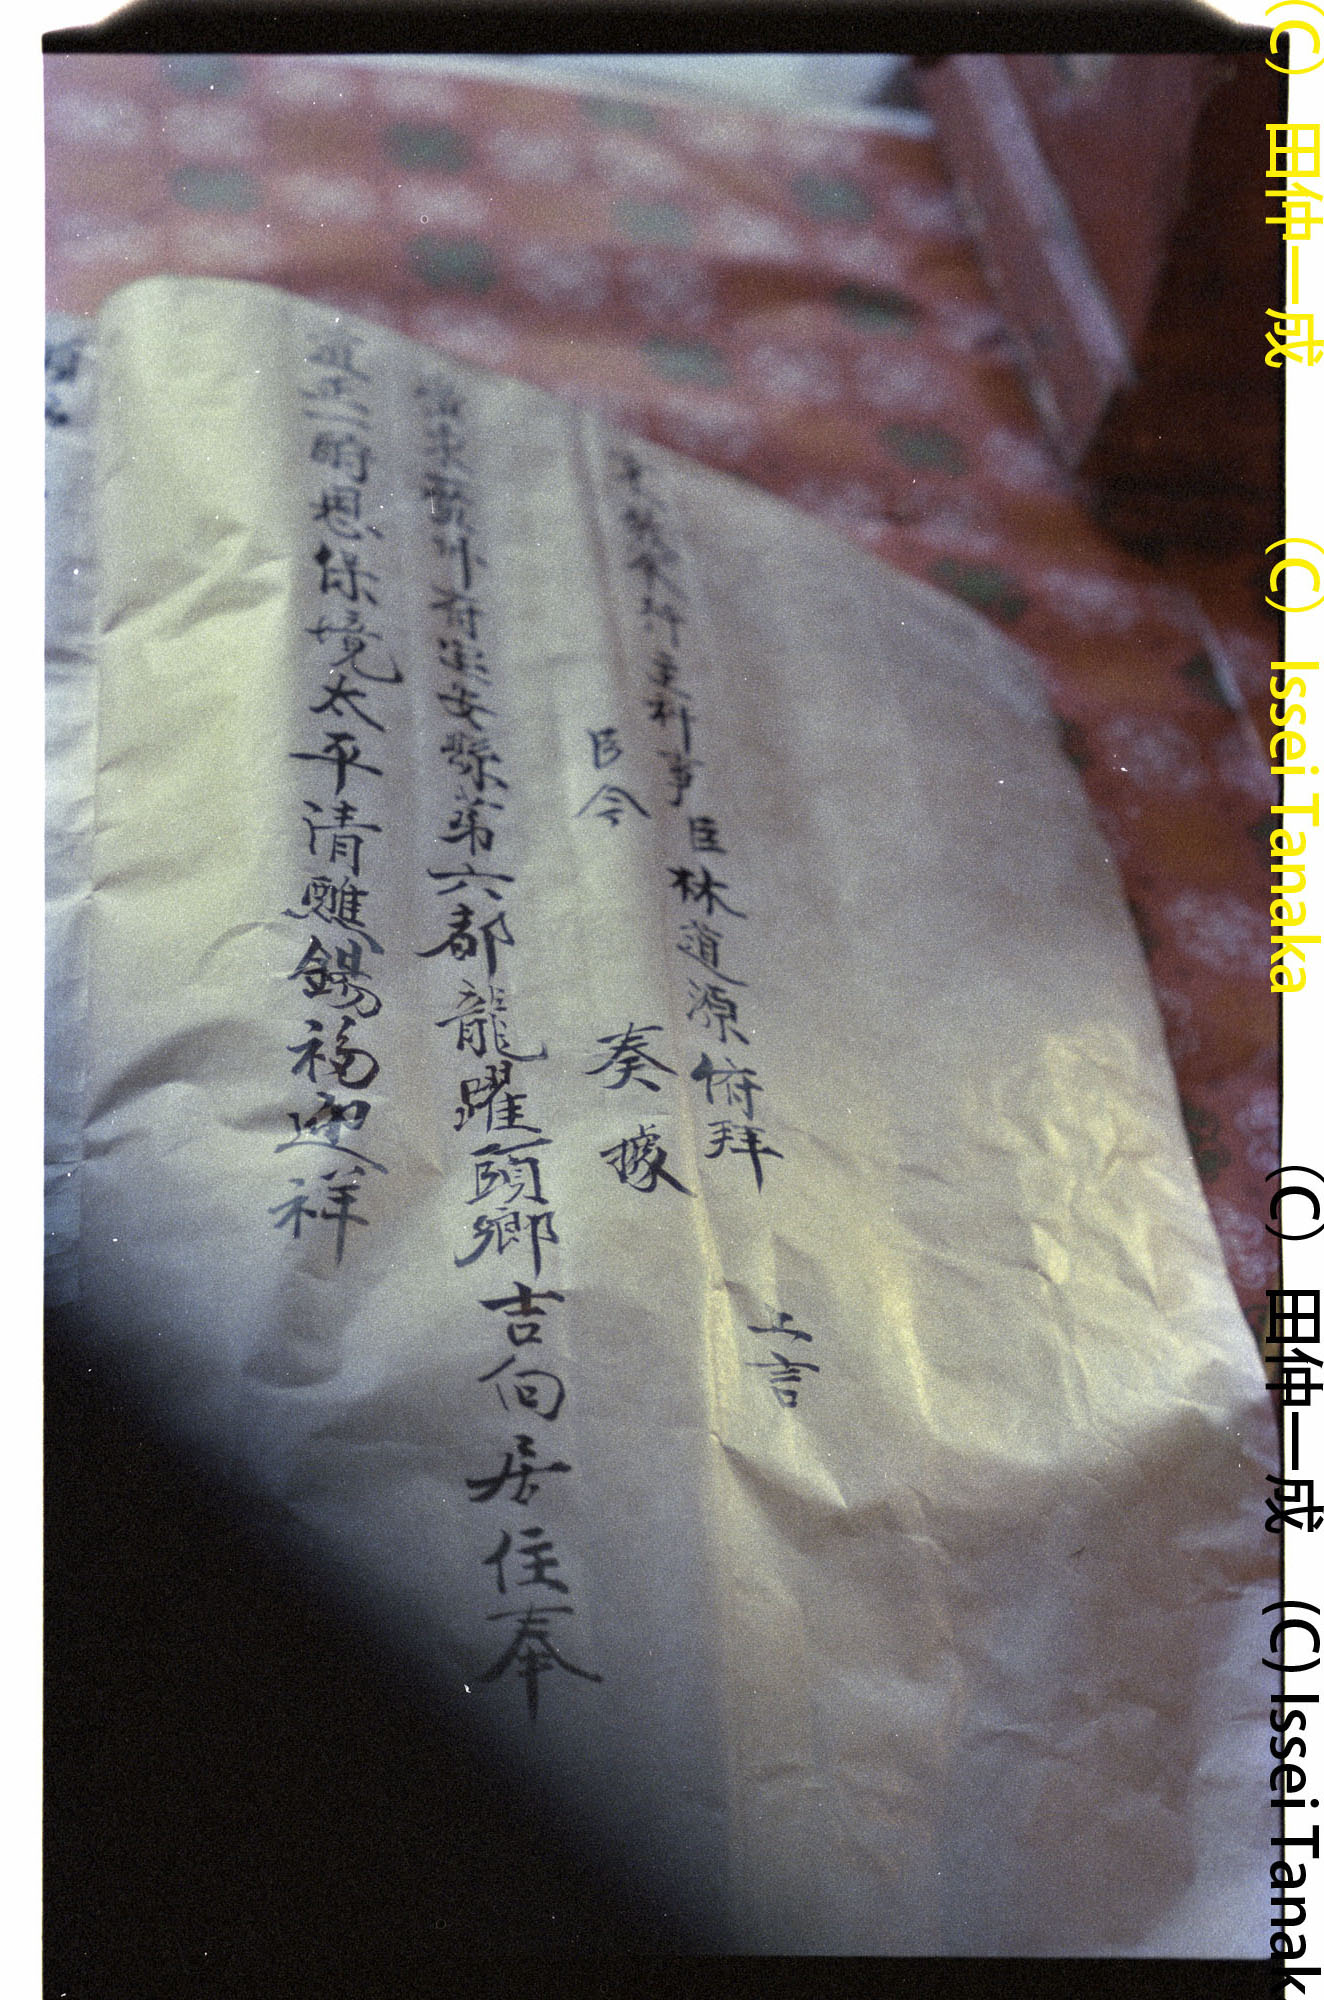 奉行主科事臣林道源俯拜 上言
臣今 奏 據
府寶安縣第六都龍躍頭鄉吉向居住奉
道正一酧恩保境太平清醮錫福迎祥
(C) 田仲一成 (C) Issei Tanaka
(C) 田仲一成 (C) Issei Tanak